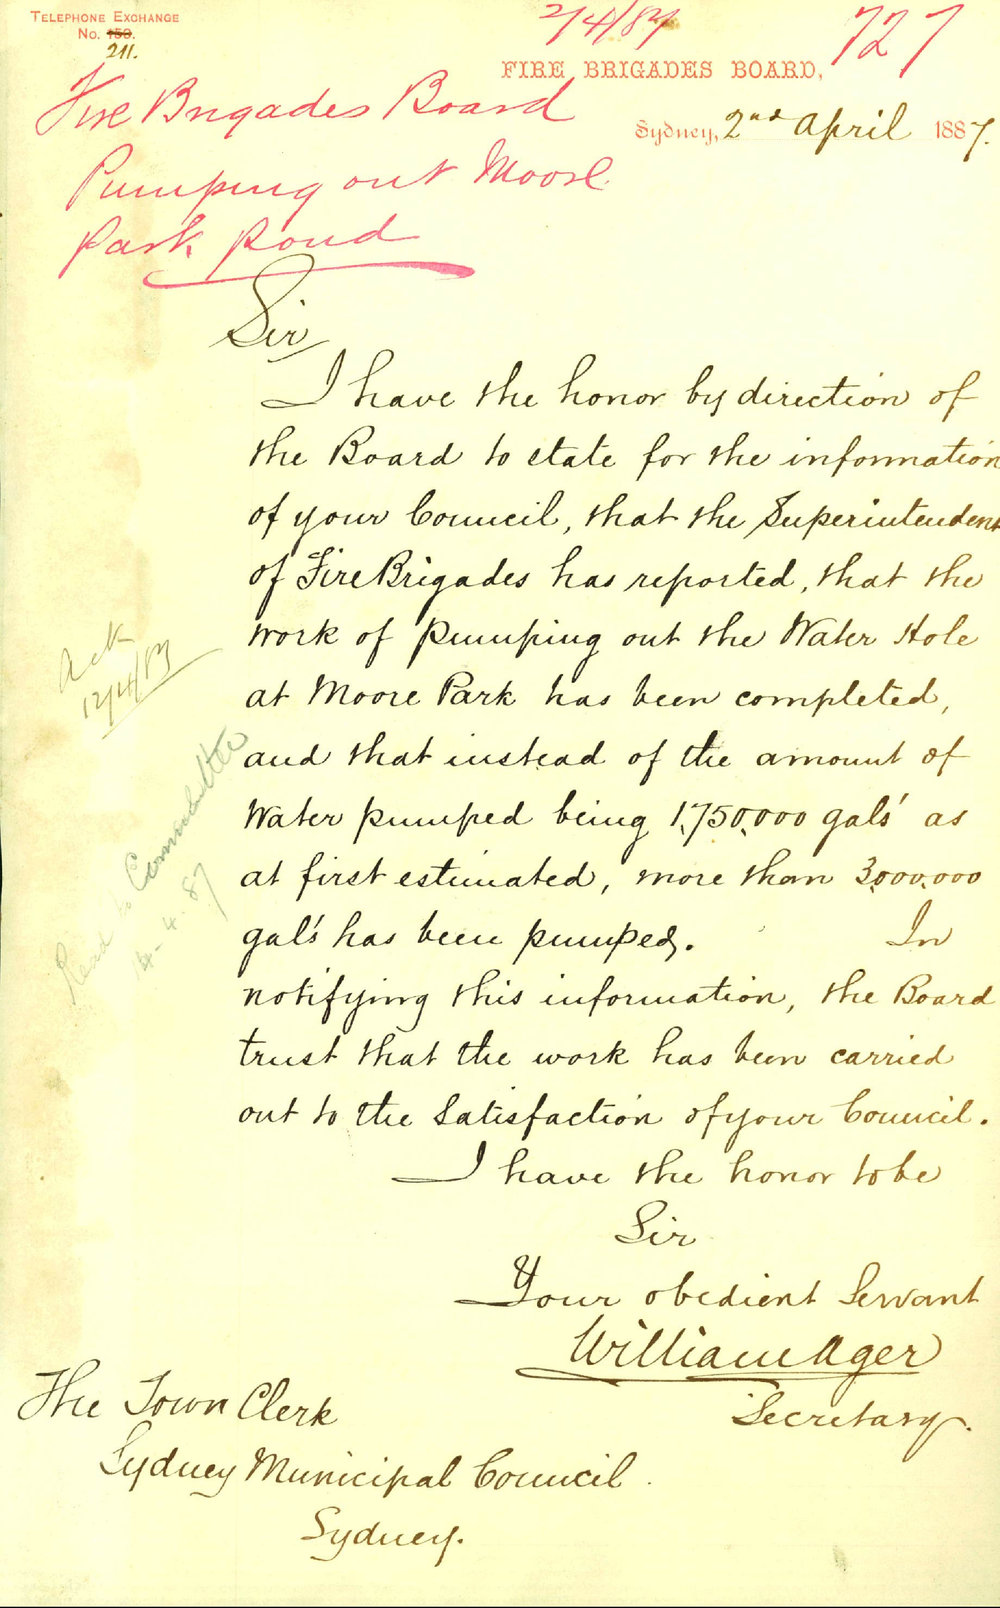 TELEPHONE EXCHANGE
No. 150.
211.
2/4/87
727
FIRE BRIGADES BOARD,
Sydney, 2nd April 1887.
Fire Brigades Board
Pumping out Moore
Park pond
Sir
I have the honor by direction of
the Board to state for the information
of your Council, that the Superintendent
of Fire Brigades has reported, that the
work of pumping out the Water Hole
at Moore Park has been completed,
and that instead of the amount of
Water pumped being 1,750,000 gals' as
at first estimated, more than 3,000,000
gal's has been pumped. In
notifying this information, the Board
trust that the work has been carried
out to the Satisfaction of your Council.
I have the honor to be
Sir
Your obedient Servant
William Ager
Secretary.
The Town Clerk
Sydney Municipal Council
Sydney.
Ack
12/4/87
Read to Committee
14-4-87